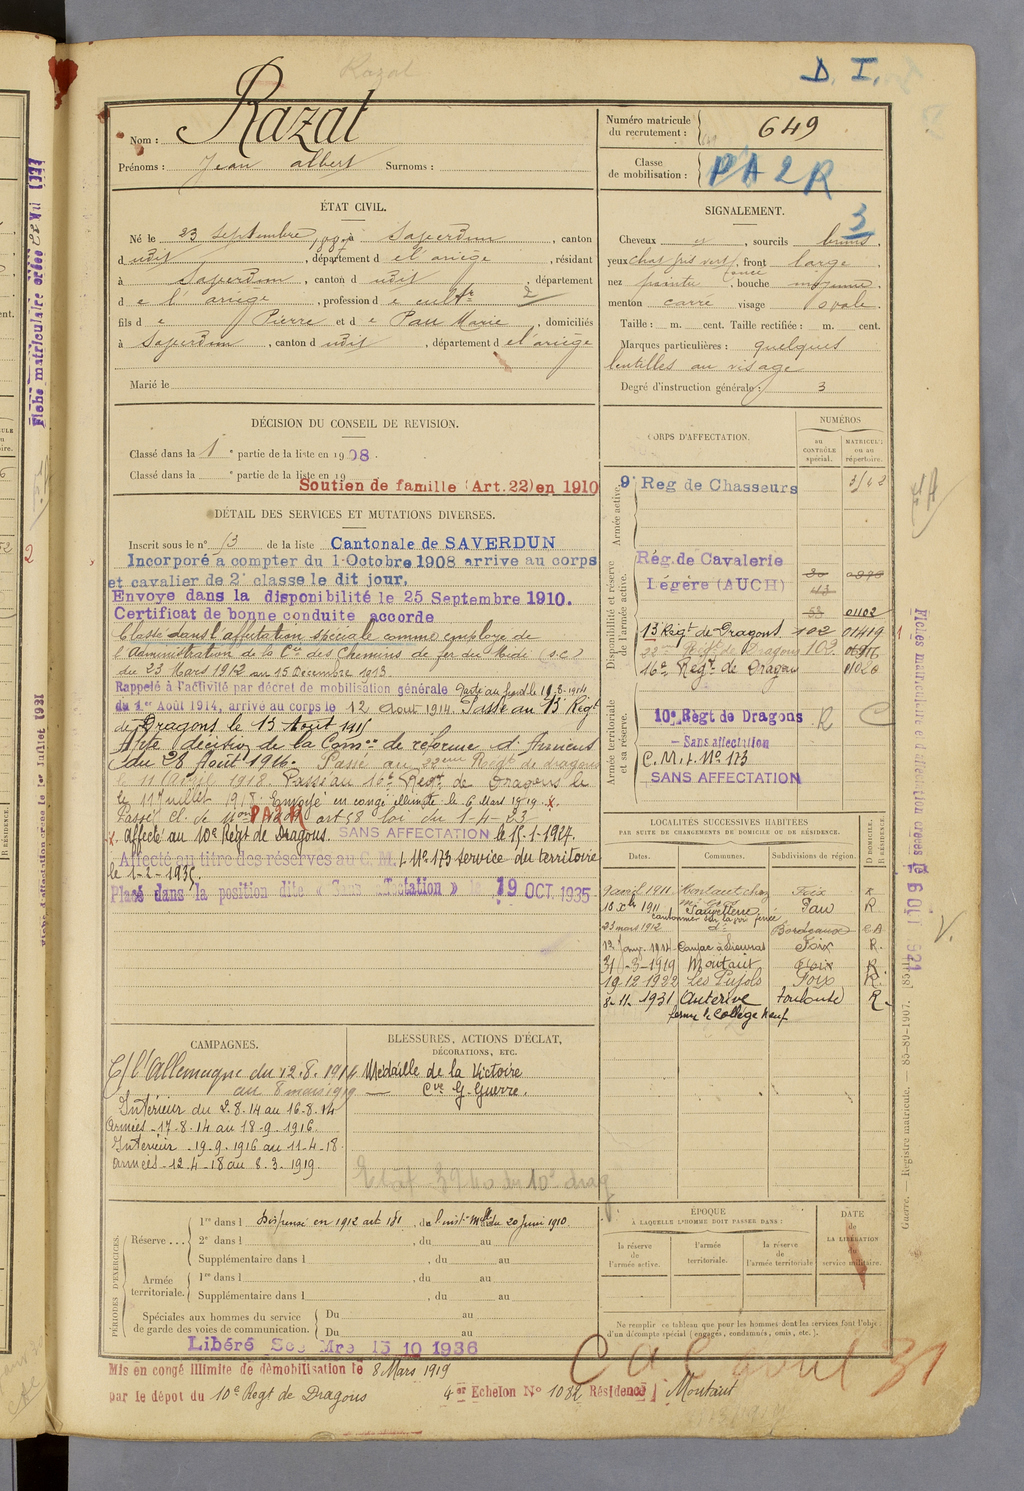 Razat
D. I.
Nom : Razat
Prénoms : Jean albert Surnoms :
Numéro matricule du recrutement : 649
Classe de mobilisation : PA2R
ÉTAT CIVIL.
Né le 23 Septembre à Saverdun, canton
dudit, département de l'ariège, résidant
à Saverdun, canton dudit, département
de l'ariège, profession de cultr
fils de Pierre et de Pau Marie, domiciliés
à Saverdun, canton dudit, département de l'ariège
Marié le
SIGNALEMENT. 3
Cheveux et, sourcils bruns,
yeux chat gris vert foncé, front large,
nez pointu, bouche moyenne,
menton carré visage ovale.
Taille : m. cent. Taille rectifiée : m. cent.
Marques particulières : quelques
lentilles au visage
Degré d'instruction générale : 3
DÉCISION DU CONSEIL DE REVISION.
Classé dans la 1e partie de la liste en 1908.
Classé dans la e partie de la liste en 19
Soutien de famille (Art. 22) en 1910
DÉTAIL DES SERVICES ET MUTATIONS DIVERSES.
Inscrit sous le n° 13 de la liste Cantonale de SAVERDUN
Incorporé a compter du 1 Octobre 1908 arrive au corps
et cavalier de 2e classe le dit jour.
Envoye dans la disponibilité le 25 Septembre 1910.
Certificat de bonne conduite accorde
Classé dans l'affectation spéciale comme employé de
l'Administration de la Cie des Chemins de fer du Midi (s.c)
du 23 Mars 1912 au 15 Décembre 1913.
Rappelé à l'activité par décret de mobilisation générale
du 1er Août 1914, arrivé au corps le 12 Aout 1914. Passé au 13 Régt
de Dragons le 13 Août 1915
décision de la Comon de réforme d'Amiens
du 28 Août 1916. Passé au 22eme Regt de dragons
le 11 Avril 1918. Passé au 16e Régt de Dragons le
le 11 Juillet 1918. Envoyé en congé illimité le 6 Mars 1919. x.
Passé cl. de mon PA2R art 58 loi du 1-4-23
x. affecté au 10e Régt de Dragons. SANS AFFECTATION le 15-1-1927.
Affecté au titre des réserves au C. M. t. No 173 service du territoire
le 1-2-1935.
Placé dans la position dite « Sans affectation » le 19 OCT. 1935
CORPS D'AFFECTATION.
NUMÉROS
au CONTRÔLE spécial.
MATRICULE ou au répertoire.
Armée active.
9e Reg de Chasseurs
Disponibilité et réserve de l'armée active.
Rég. de Cavalerie
Légère (AUCH)
01102
13e Régt de Dragons 102 01419
22e Régt de Dragons 102
16e Regt de Dragons 01020
Armée territoriale et sa réserve.
10e Régt de Dragons R
- Sans affectation
C. M. t. No 173
SANS AFFECTATION
LOCALITÉS SUCCESSIVES HABITÉES
PAR SUITE DE CHANGEMENTS DE DOMICILE OU DE RÉSIDENCE.
Dates. Communes. Subdivisions de région. D DOMICILE. R RÉSIDENCE.
9 avril 1911 Montaut chez Foix R
18 Xbre 1911 Sauveterre Pau R
cantonnier sur la voie ferrée
23 mars 1912 d° Bordeaux C.A
Janv. 1914 Foix R.
31-3-1919 Montaut Foix R
19-12-1922 Les Pujols Foix R.
8-11-1931 Auterive Toulouse R.
ferme le Collège Neuf
CAMPAGNES.
C/ l'Allemagne du 12.8.1914
au 8 mars 1919
Intérieur du 2.8.14 au 16-8.14
Armées -17-8.14 au 18-9-1916.
Intérieur -19-9.1916 au 11-4-18.
Armées -12-4-18 au 8.3.1919.
BLESSURES, ACTIONS D'ÉCLAT, DÉCORATIONS, ETC.
Médaille de la Victoire
— Cve G. Guerre.
Etat 3940 du 10e drag
PÉRIODES D'EXERCICES.
Réserve ...
1re dans l Dispensé en 1912 art 181, de l'instn Melle du 20 Juin 1910.
2e dans l , du au
Supplémentaire dans l , du au
Armée territoriale.
1re dans l , du au
Supplémentaire dans l , du au
Spéciales aux hommes du service de garde des voies de communication.
Du au
Du au
Libéré Sce Mre 15 10 1936
ÉPOQUE
À LAQUELLE L'HOMME DOIT PASSER DANS :
la réserve de l'armée active.
l'armée territoriale.
la réserve de l'armée territoriale
DATE de LA LIBÉRATION du service militaire.
Ne remplir ce tableau que pour les hommes dont les services font l'objet d'un décompte spécial (engagés, condamnés, omis, etc.).
Mis en congé illimité de démobilisation le 8 Mars 1919
par le dépot du 10e Regt de Dragons 4e Echelon No 1082 Résidence Montaut
Guerre. — Registre matricule. — 85-89-1907.